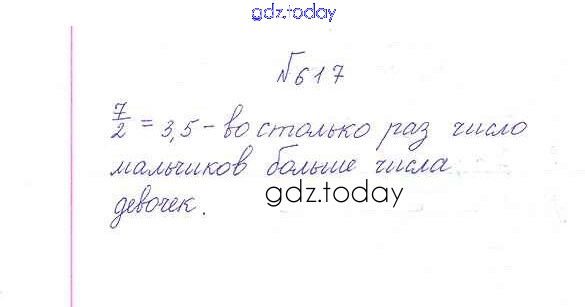 gdz.today
№617
7/2 = 3,5 - во столько раз число
мальчиков больше числа
девочек.
gdz.today